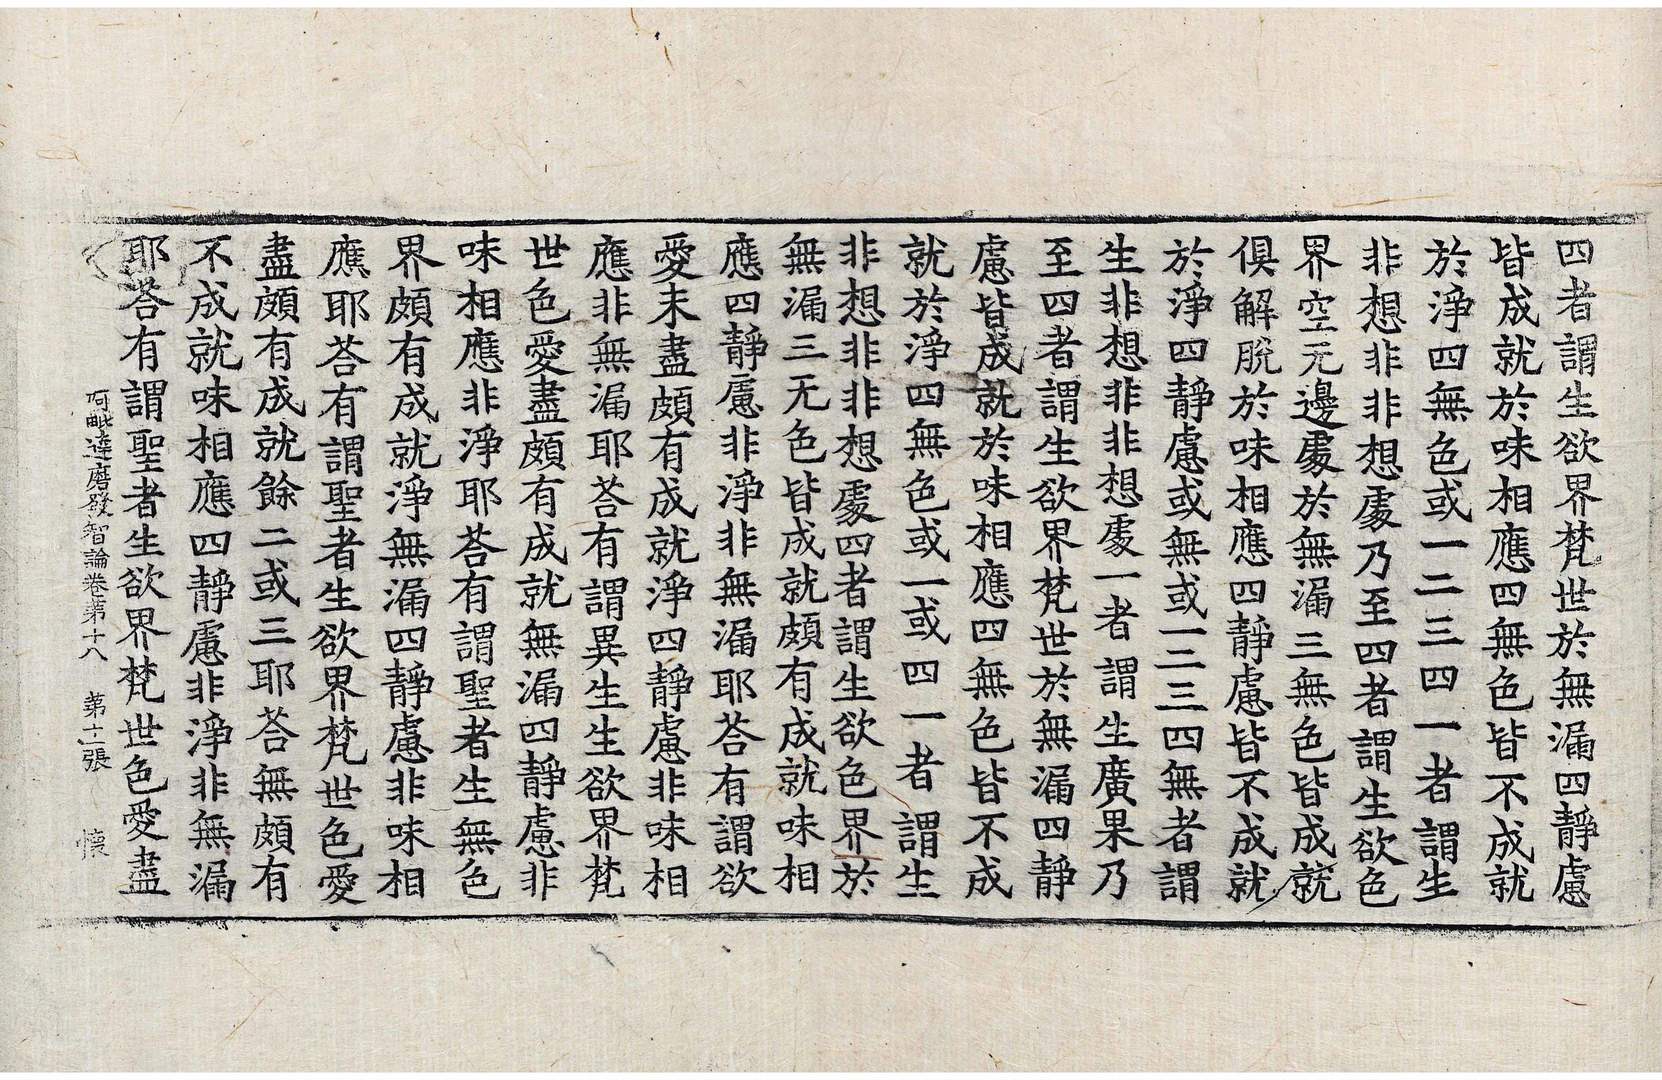 四者謂生欲界梵世於無漏四靜慮
皆成就於味相應四無色皆不成就
於淨四無色或一二三四一者謂生
非想非非想處乃至四者謂生欲色
界空无邊處於無漏三無色皆成就
俱解脫於味相應四靜慮皆不成就
於淨四靜慮或無或一二三四無者謂
生非想非非想處一者謂生廣果乃
至四者謂生欲界梵世於無漏四靜
慮皆成就於味相應四無色皆不成
就於淨四無色或一或四一者謂生
非想非非想處四者謂生欲色界於
無漏三无色皆成就頗有成就味相
應四靜慮非淨非無漏耶荅有謂欲
愛未盡頗有成就淨四靜慮非味相
應非無漏耶荅有謂異生生欲界梵
世色愛盡頗有成就無漏四靜慮非
味相應非淨耶荅有謂聖者生無色
界頗有成就淨無漏四靜慮非味相
應耶荅有謂聖者生欲界梵世色愛
盡頗有成就餘二或三耶荅無頗有
不成就味相應四靜慮非淨非無漏
耶荅有謂聖者生欲界梵世色愛盡
阿毗達磨發智論卷第十八 第十張 懷